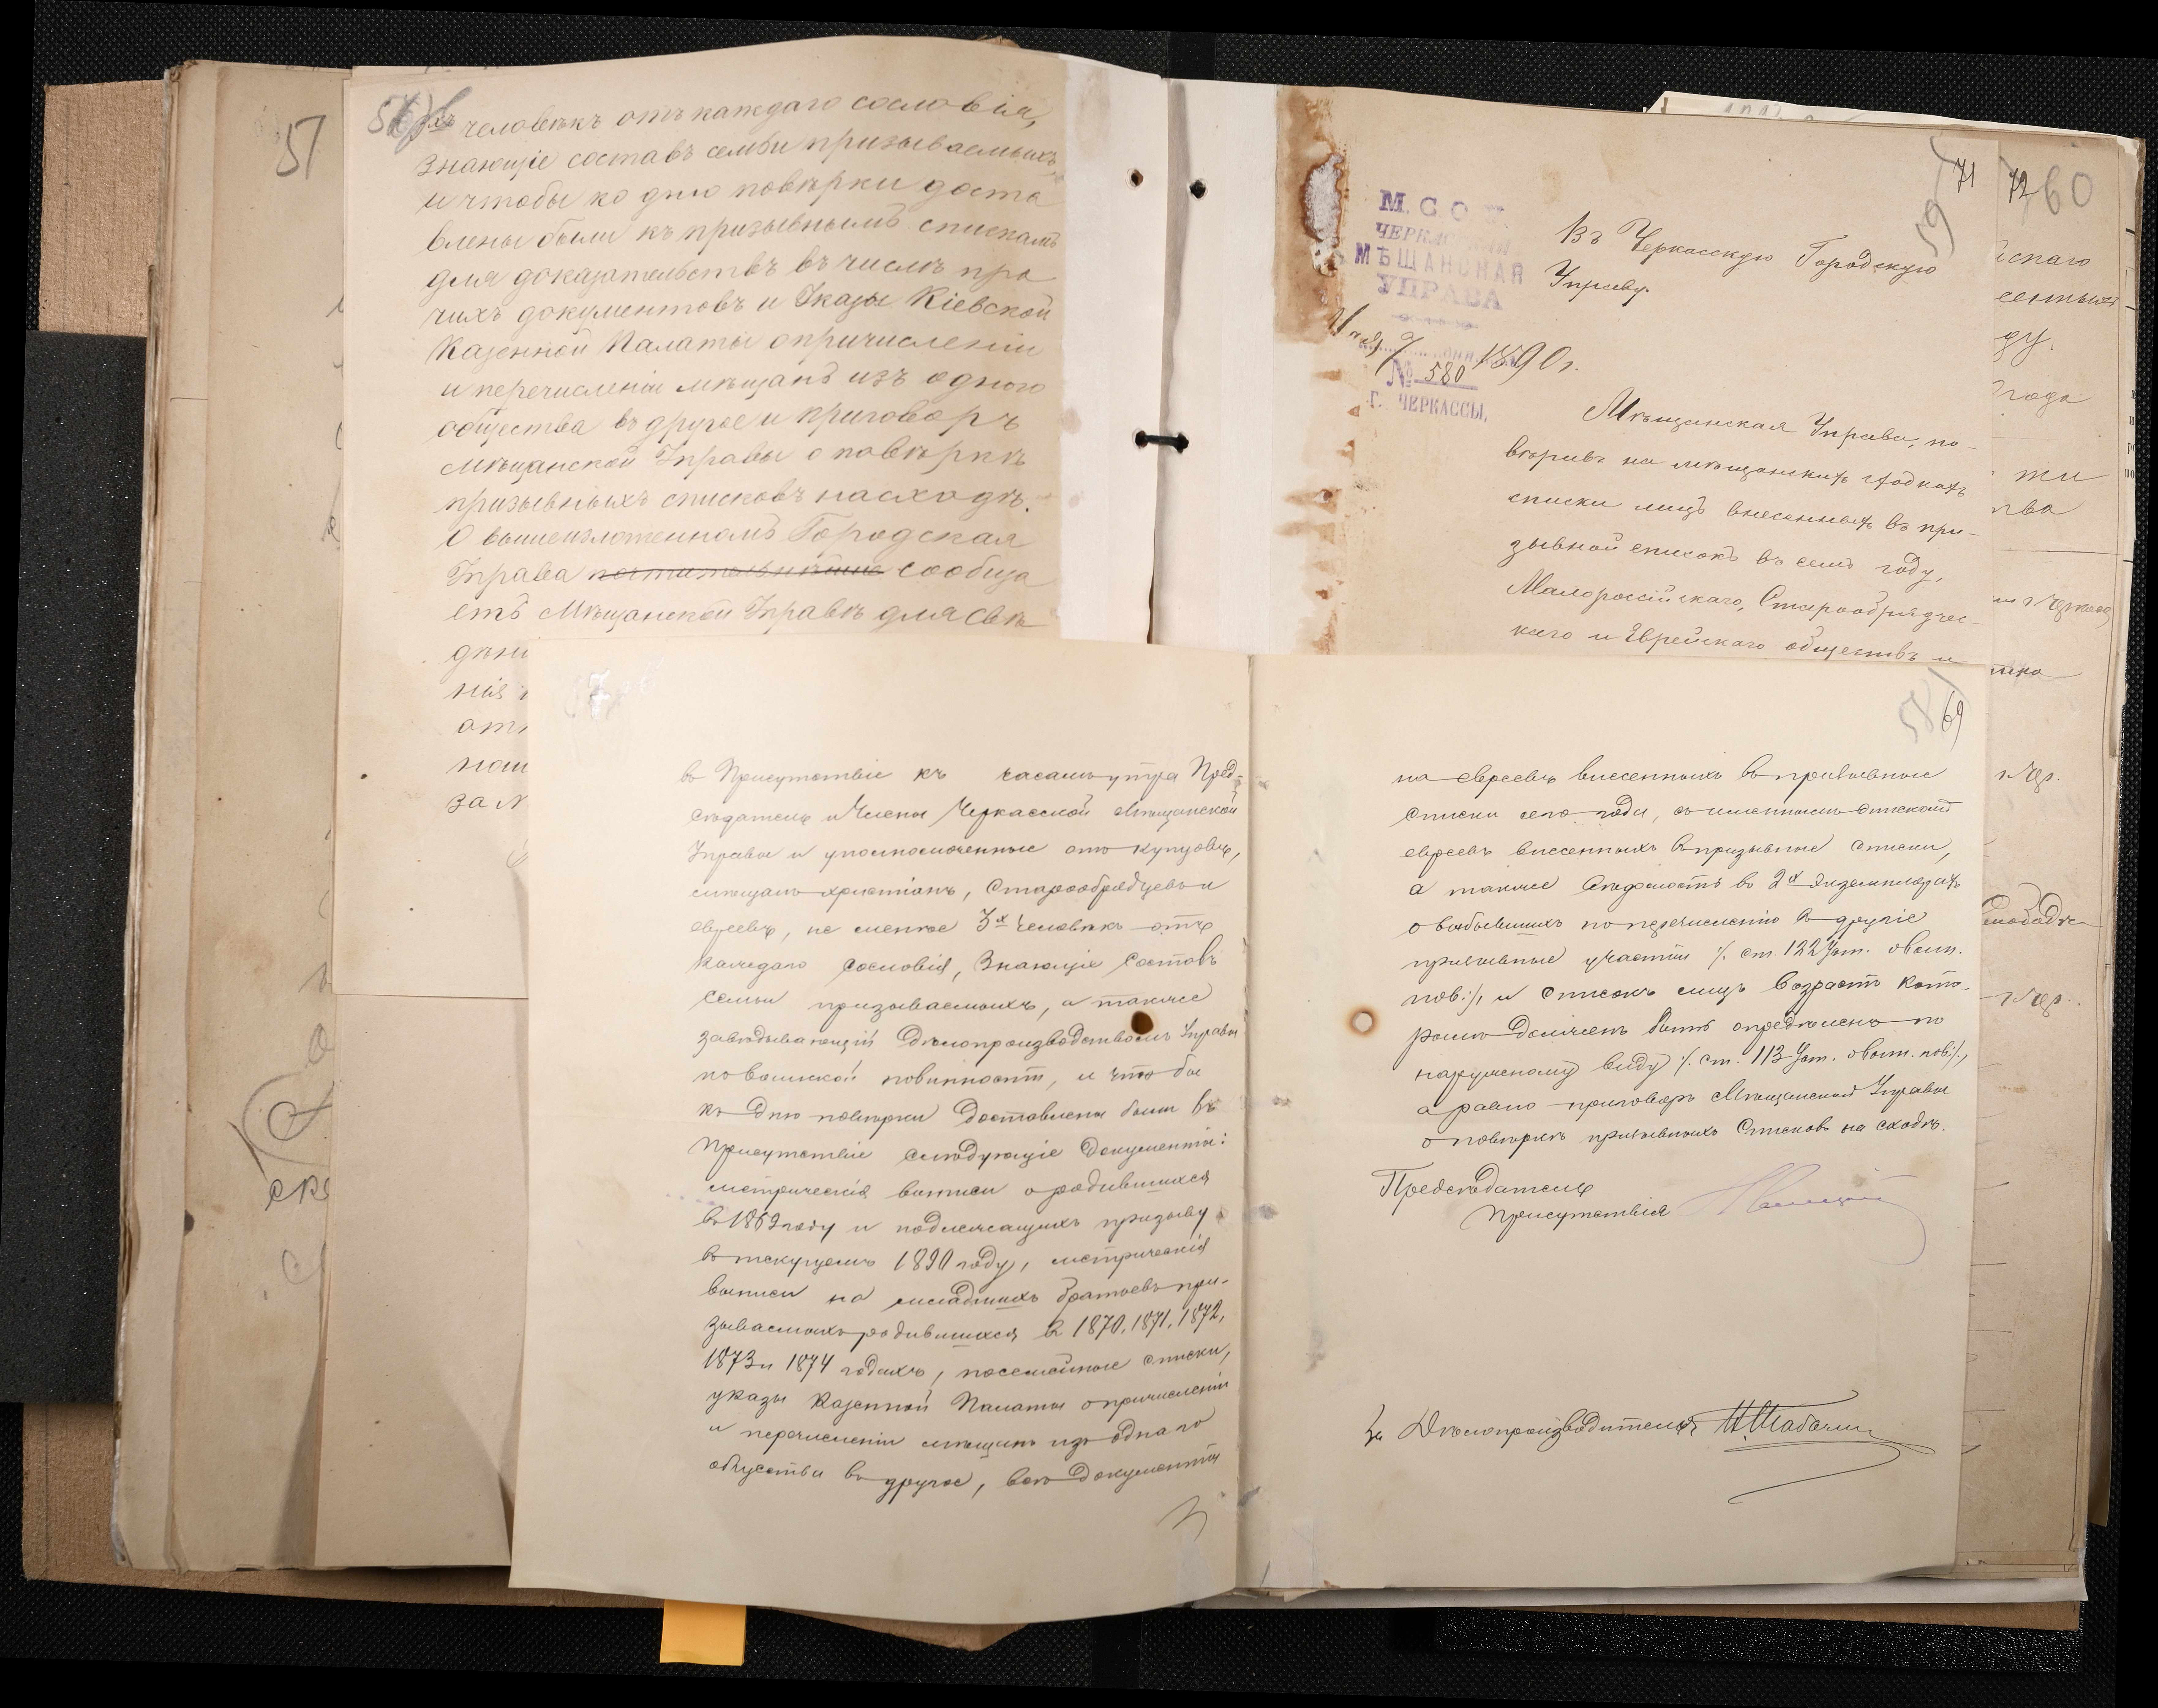 57
человѣкъ отъ каждаго сословія,
знающіе составъ семьи призываемыхъ
и чтобы ко дню повѣрки доста
влены были къ призывнымъ спискамъ
для доказательствъ въ числѣ про
чихъ документовъ и Указы Кіевской
Казенной Палаты о причисленіи
и перечисленіи мѣщанъ изъ одного
общества въ другое и приговоръ
мѣщанской Управы о повѣркѣ
призывныхъ списковъ на сходѣ.
О вышеизложенномъ Городская
Управа почтительнѣйше сообща
етъ Мѣщанской Управѣ для свѣ
дѣні
нія
отн
ном
за №
71
59
М.С.О.
ЧЕРКАССКАЯ
МѢЩАНСКАЯ
УПРАВА
9 1890 г.
№ 580
Г. ЧЕРКАССЫ.
Въ Черкасскую Городскую
Управу.
Мѣщанская Управа, по-
вѣривъ на мѣщанскихъ сходкахъ
списки лицъ внесенныхъ въ при-
зывной списокъ въ семъ году,
Малороссійскаго, Старообрядчес-
каго и Еврейскаго обществъ и
72
60
года
въ Присутствіе къ часамъ утра Пред-
сѣдатель и Члены Черкасской Мѣщанской
Управы и уполномоченные отъ купцовъ,
мѣщанъ христіанъ, Старообрядцевъ и
евреевъ, не менѣе 3х человѣкъ отъ
каждаго сословія, знающіе составъ
семьи призываемыхъ, а также
завѣдывающій дѣлопроизводствомъ Управы
по воинской повинности, и чтобы
ко дню повѣрки доставлены были въ
Присутствіе слѣдующіе документы:
метрическія выписи о родившихся
въ 1869 году и подлежащихъ призыву
въ текущемъ 1890 году, метрическія
выписи на младшихъ братьевъ при-
зываемыхъ родившихся въ 1870, 1871, 1872,
1873 и 1874 годахъ, посемейные списки,
указы Казенной Палаты о причисленіи
и перечисленіи мѣщанъ изъ одного
общества въ другое, всѣ документы
58
69
на евреевъ внесенныхъ въ призывные
списки сего года, съ именнымъ спискомъ
евреевъ внесенныхъ въ призывные списки,
а также вѣдомость въ 2х экземплярахъ
о выбывшихъ по перечисленію въ другіе
призывные участки /. ст. 122 Уст. о воин.
пов:/, и списокъ лицъ возрастъ кото-
рыхъ долженъ быть опредѣленъ по
наружному виду /. ст. 113 Уст. о воин. пов:/,
а равно приговоръ Мѣщанской Управы
о повѣркѣ призывныхъ списковъ на сходѣ.
Предсѣдатель
Присутствія
За Дѣлопроизводителя